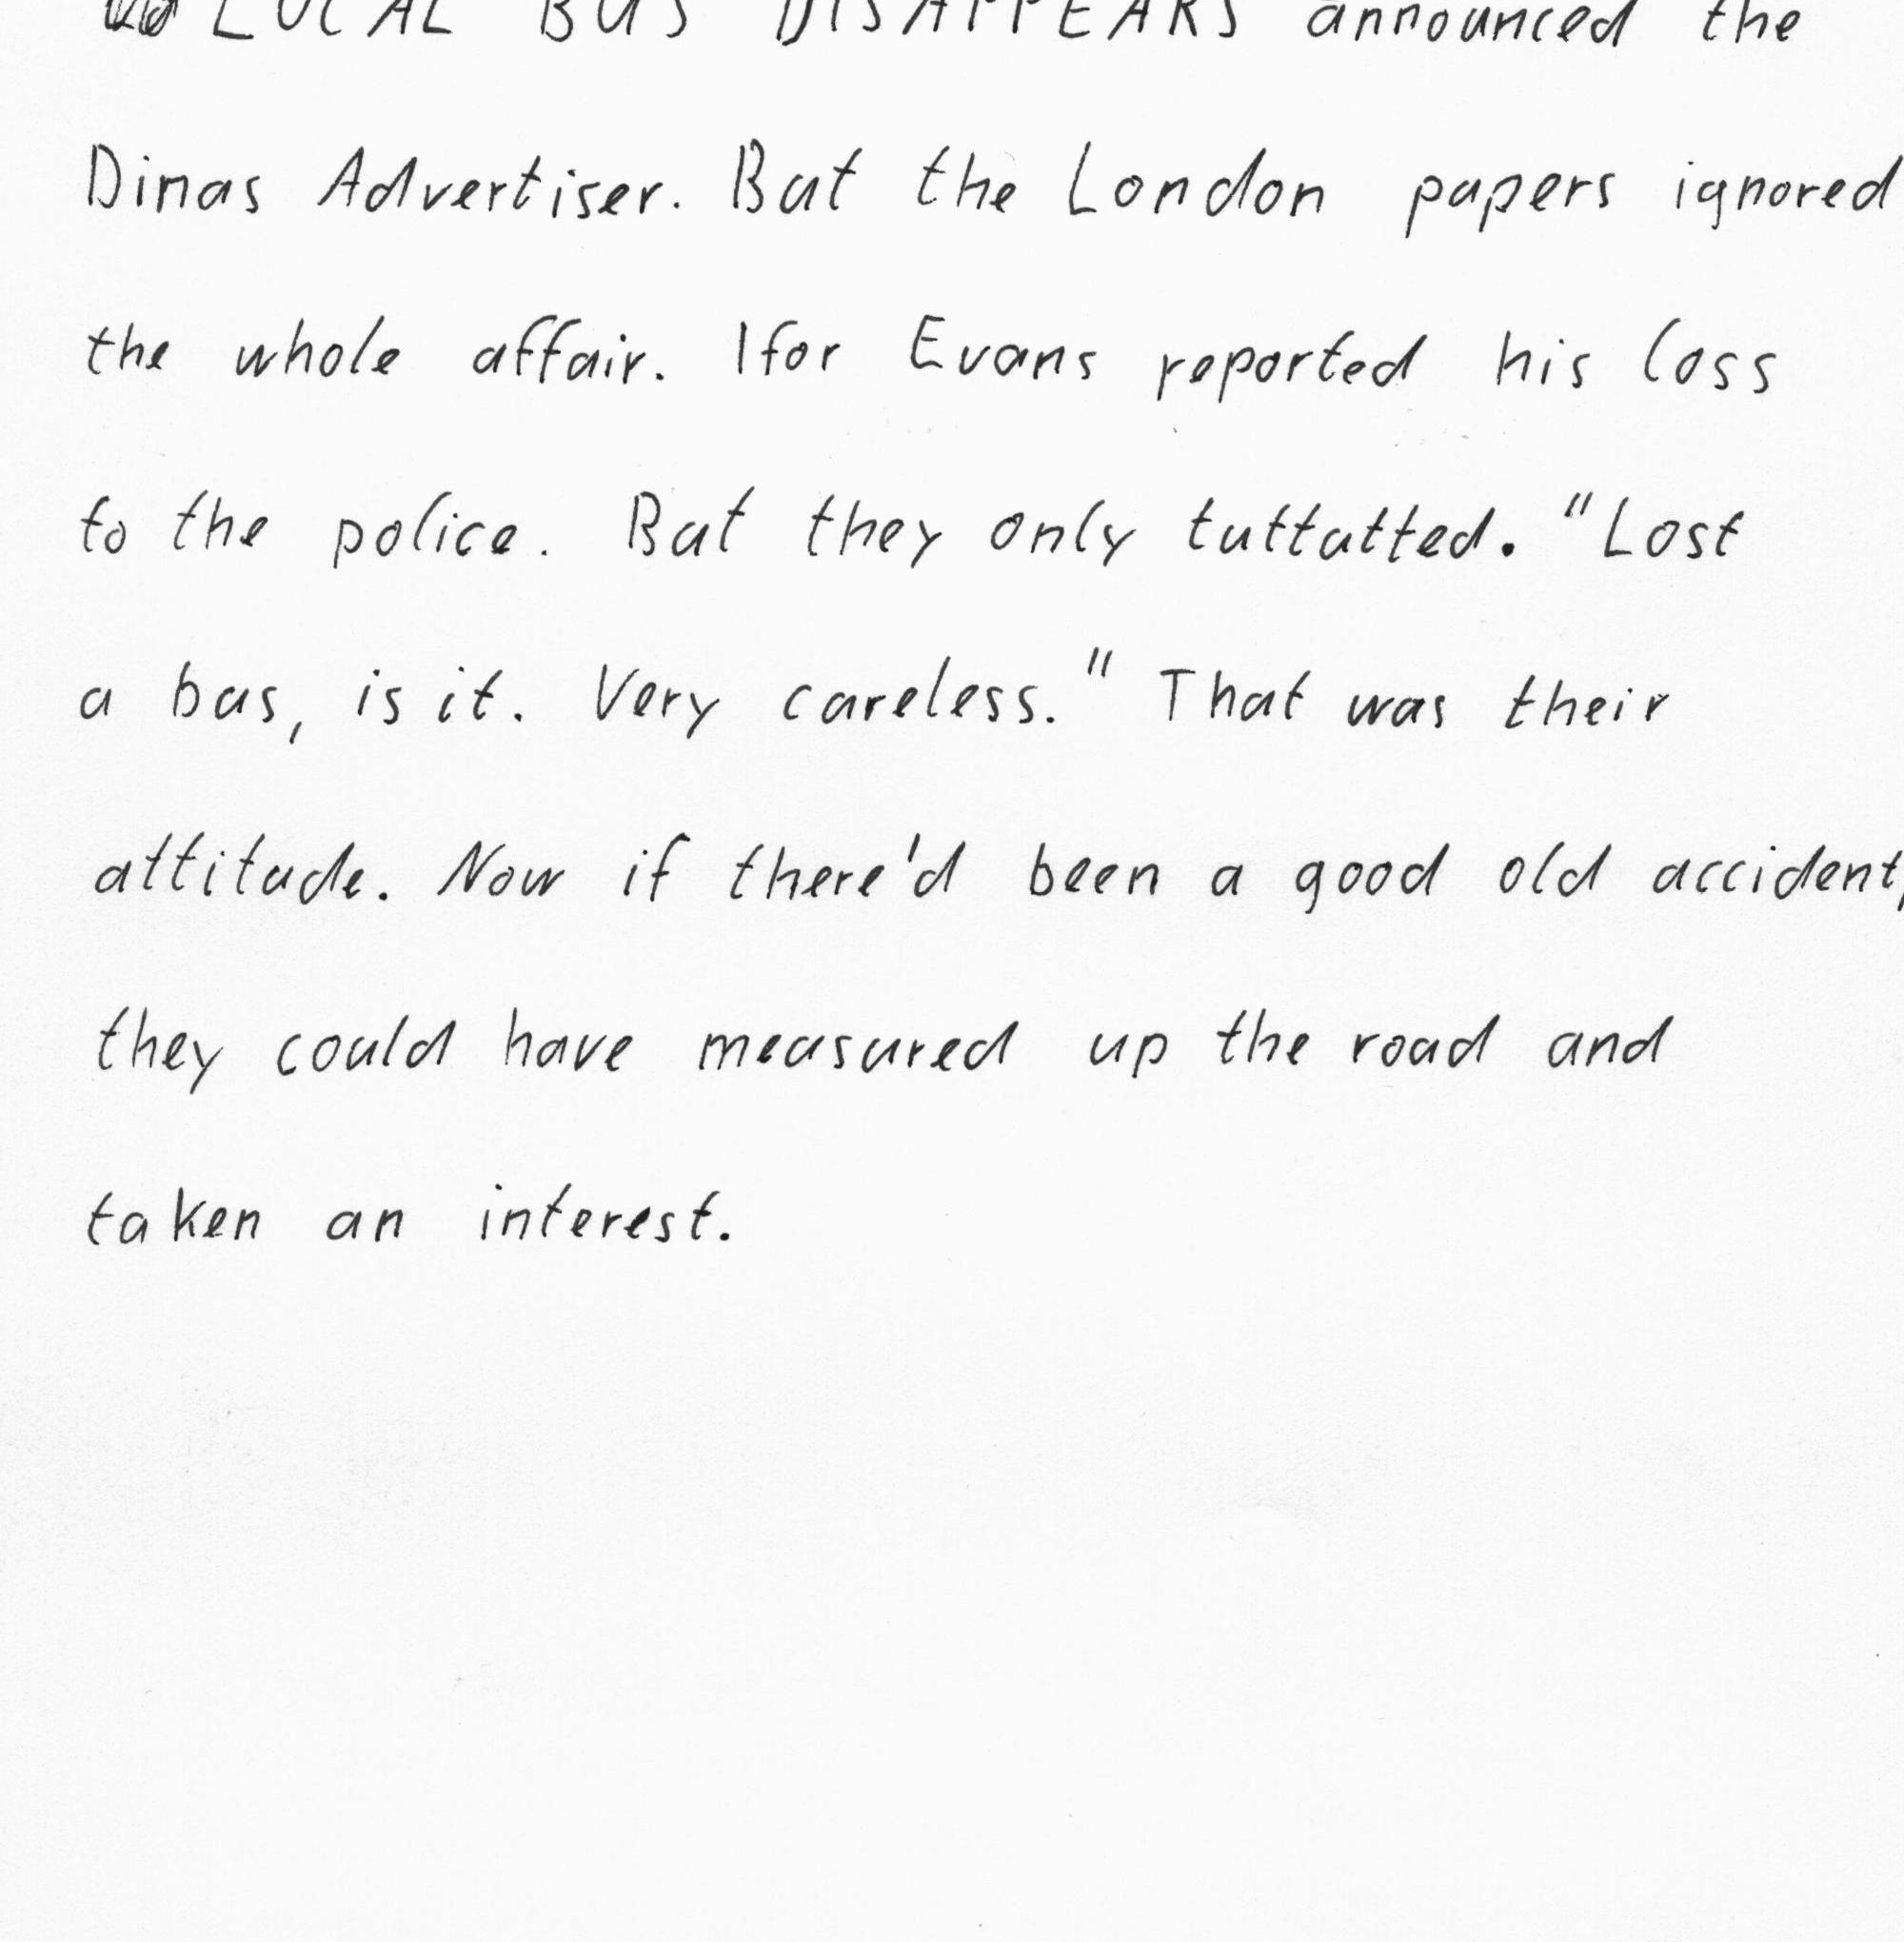 LOCAL BUS DISAPPEARS announced the
Dinas Advertiser. But the London papers ignored
the whole affair. Ifor Evans reported his loss
to the police. But they only tuttutted. "Lost
a bus, is it. Very careless." That was their
attitude. Now if there'd been a good old accident,
they could have measured up the road and
taken an interest.